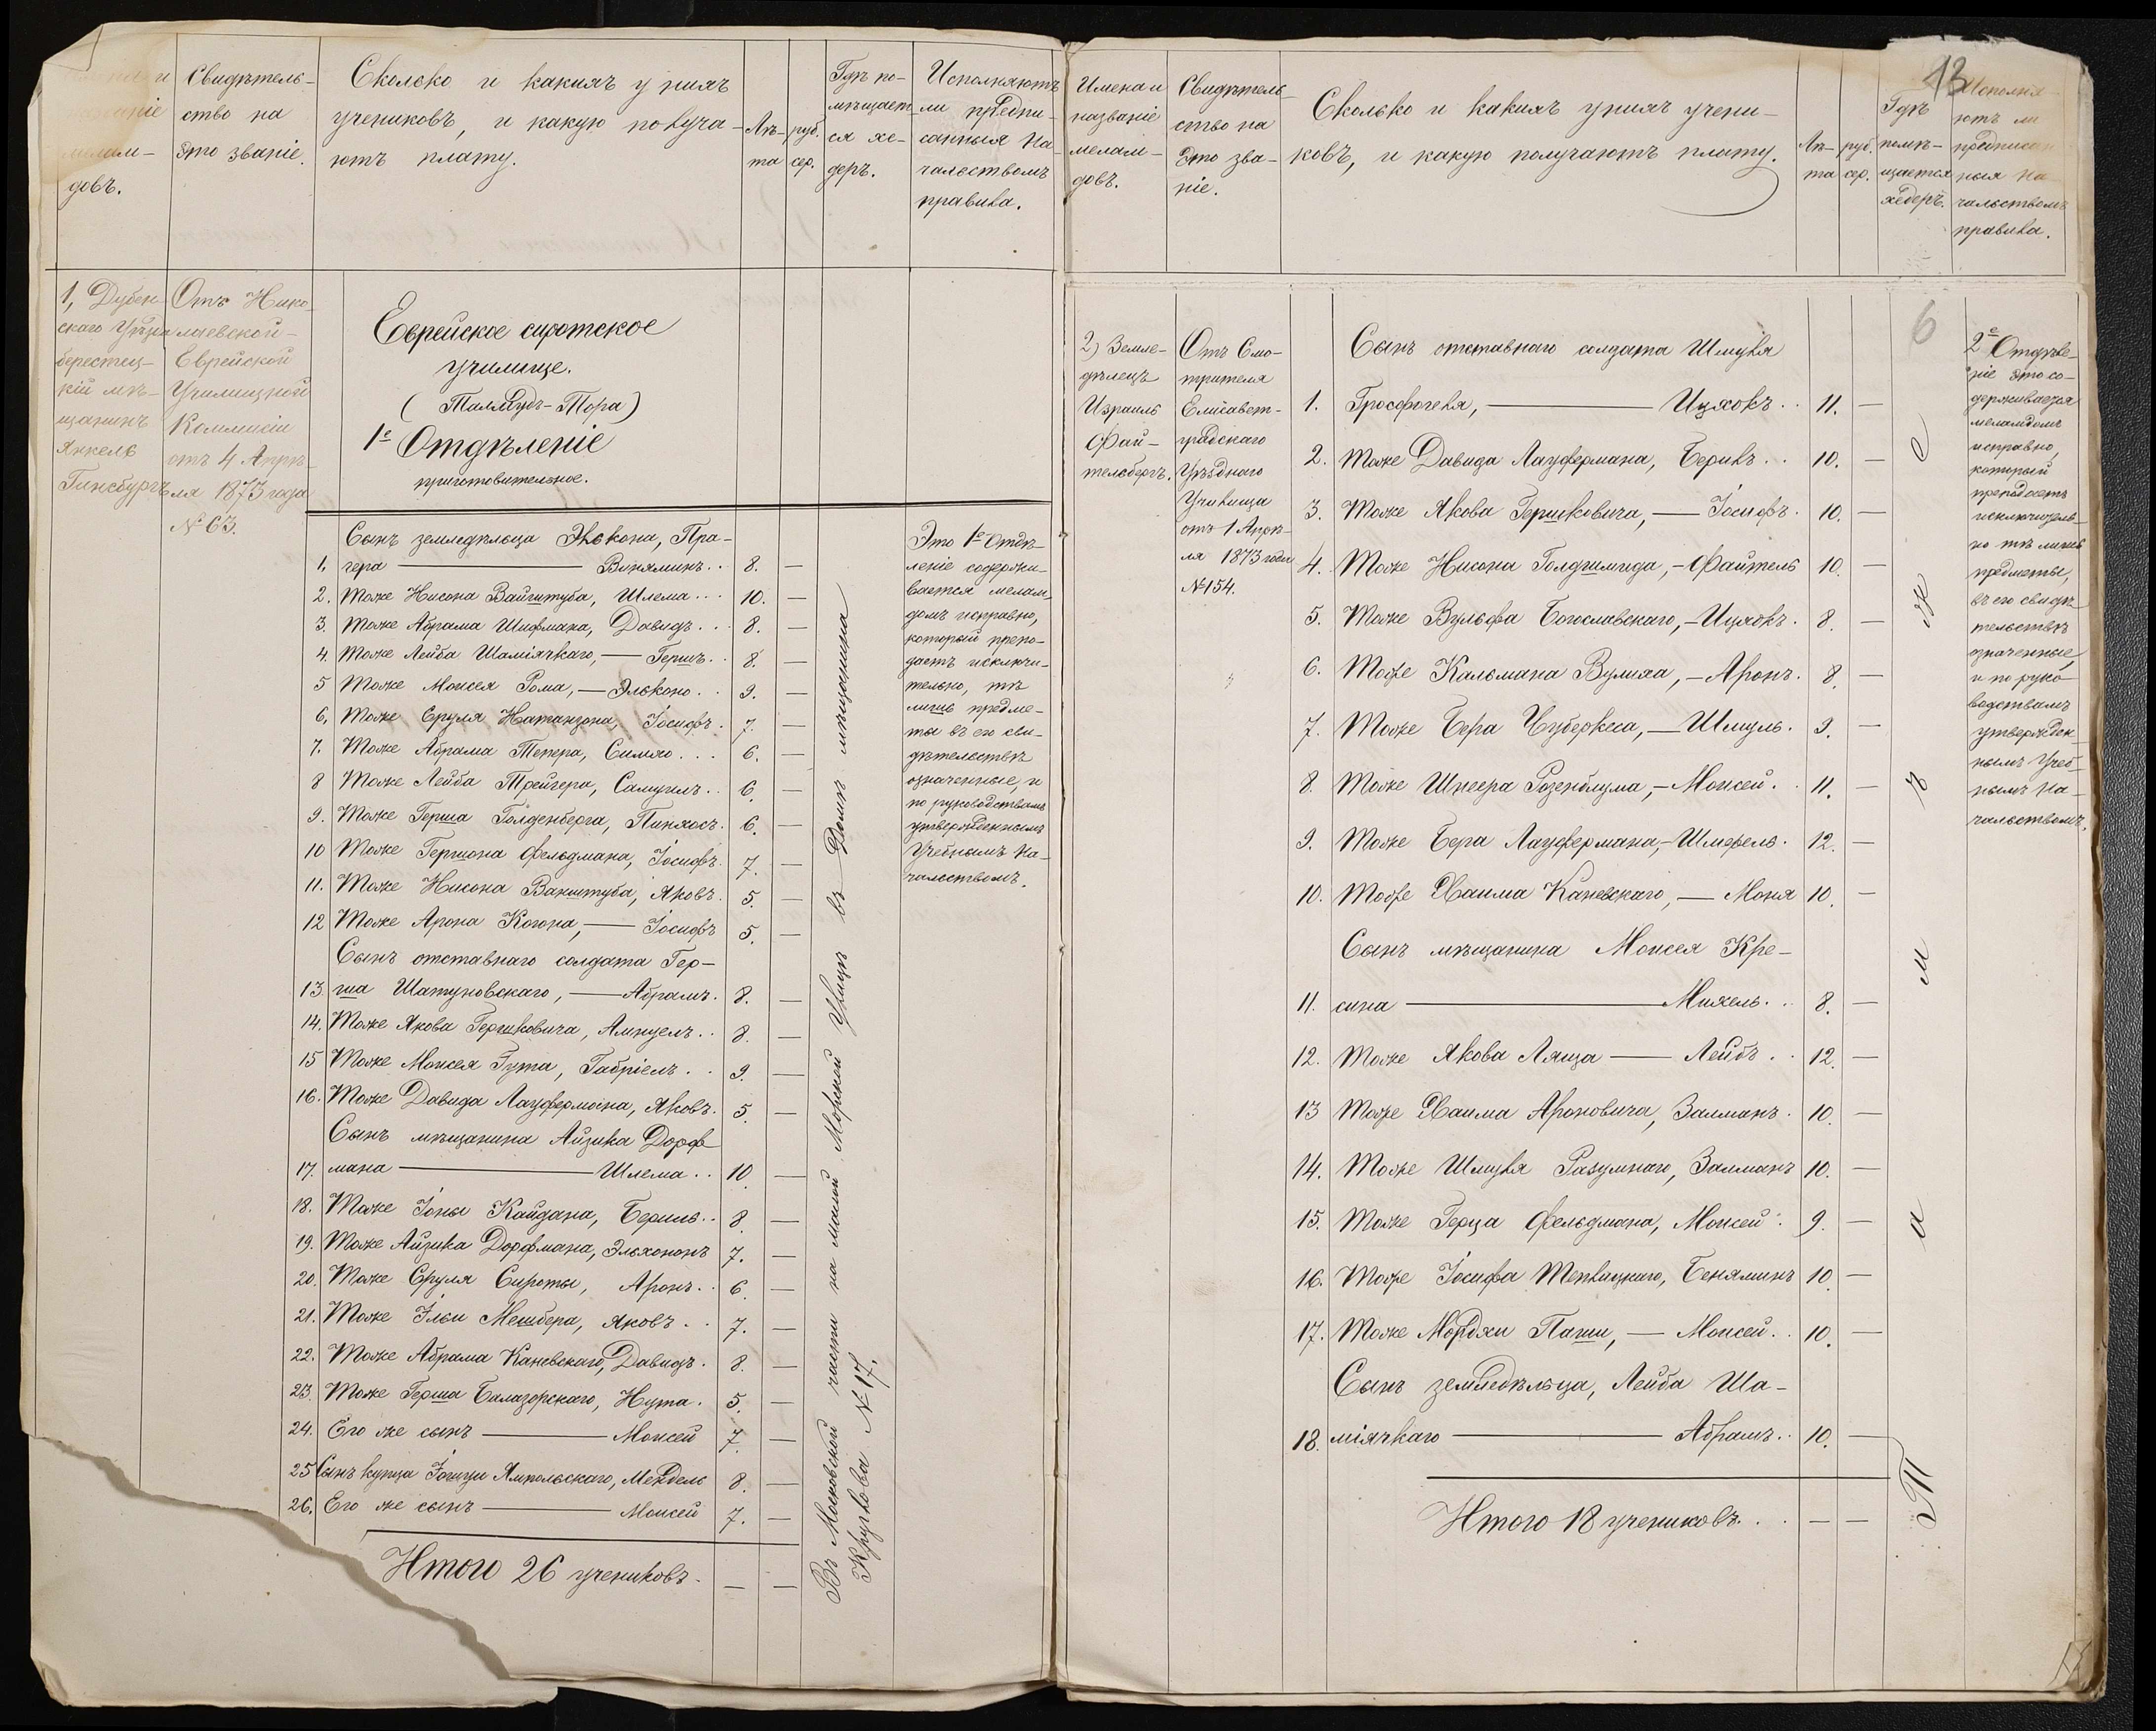 Свидѣтель-
ство на
это званіе.
мелам-
довъ.
Сколько и какихъ у нихъ
учениковъ, и какую получа-
ютъ плату.
Лѣ-
та
руб.
сер.
Гдѣ по-
мѣщает-
ся хе-
деръ.
Исполняютъ
ли предпи-
санныя на-
чальствомъ
правила.
1, Дубен-
скаго Уѣзда
берестец-
кій мѣ-
щанинъ
Янкель
Гинсбургъ
Отъ Нико-
лаевской
Еврейской
Училищной
Коммисіи
отъ 4 Апрѣ-
ля 1873 года
№ 63.
Еврейское сиротское
училище.
(Талмудъ-Тора)
1е Отдѣленіе
приготовительное.
Сынъ земледѣльца Эльконы, Пра-
1. гера — Виняминъ.. 8. —
2. Тоже Нисона Вайнштуба, Шлема... 10. —
3. Тоже Абрама Шифмана, Давидъ... 8. —
4. Тоже Лейба Шаміячкаго, — Гершъ.. 8. —
5 Тоже Моисея Рома, — Эльконо.. 9. —
6. Тоже Сруля Натанзона, Іосифъ. 7. —
7. Тоже Абрама Тепера, Симхо... 6. —
8 Тоже Лейба Трейгера, Самуилъ.. 6. —
9. Тоже Герша Голденберга, Пинхосъ. 6. —
10 Тоже Гершона Фельдмана, Іосифъ. 7. —
11. Тоже Нисона Ванштуба, Яковъ. 5. —
12 Тоже Арона Когона, — Іосифъ 5. —
Сынъ отставнаго солдата Гер-
13. ша Шатуновскаго, — Абрамъ. 8. —
14. Тоже Якова Гершковича, Амнуелъ.. 8. —
15 Тоже Моисея Гута, Габріелъ.. 9. —
16. Тоже Давида Лауфермана, Яковъ. 5. —
Сынъ мѣщанина Айзика Дорф-
17. мана — Шлема.. 10. —
18. Тоже Іоны Кайдана, Бериль.. 8. —
19. Тоже Айзика Дорфмана, Эльхононъ 7. —
20. Тоже Сруля Сироты, Аронъ.. 6. —
21. Тоже Ильи Мешбера, Яковъ.. 7. —
22. Тоже Абрама Каневскаго, Давидъ. 8. —
23. Тоже Герша Балагорскаго, Нута. 5. —
24. Его же сынъ — Моисей 7. —
25 Сынъ купца Іогиуи Ямпольскаго, Мендель 8. —
26. Его же сынъ — Моисей 7. —
Итого 26 учениковъ. — —
Въ Московской части на малой Морской Улицѣ въ Домѣ мѣщанина
Круглова № 17.
Это 1е Отдѣ-
леніе содержи-
вается мелам-
домъ исправно,
который препо-
даетъ исключи-
тельно, тѣ
лишь предме-
ты въ его сви-
дѣтельствѣ
означенные, и
по руководствамъ
утвержденнымъ
Учебнымъ На-
чальствомъ.
13
Имена и
названіе
мелам-
довъ.
Свидѣтель-
ство на
это зва-
ніе.
Сколько и какихъ у нихъ учени-
ковъ, и какую получаютъ плату.
Лѣ-
та
руб.
сер.
Гдѣ
помѣ-
щается
хедеръ.
Исполня-
ютъ ли
предписан-
ныя на-
чальствомъ
правила.
6
2) Земле-
дѣлецъ
Израиль
Фай-
тельбергъ.
Отъ Смо-
трителя
Елисавет-
градскаго
Уѣзднаго
Училища
отъ 1 Апрѣ-
ля 1873 года
№ 154.
Сынъ отставнаго солдата Шмуля
1. Гросфогеля, — Ицхокъ.. 11. —
2. Тоже Давида Лауфермана, Берилъ.. 10. —
3. Тоже Якова Гершковича, — Іосифъ. 10. —
4. Тоже Нисона Голдшмида, — Файтель 10. —
5. Тоже Вульфа Богославскаго, — Ицхокъ. 8. —
6. Тоже Кальмана Вулиха, — Аронъ. 8. —
7. Тоже Бера Чуберкеса, — Шмуль. 9. —
8. Тоже Шнеера Розенблума, — Моисей. 11. —
9. Тоже Бера Лауфермана, — Шмерель. 12. —
10. Тоже Хаима Каневскаго, — Моня 10. —
Сынъ мѣщанина Моисея Кре-
11. сина — Михель... 8. —
12. Тоже Якова Ляща — Лейбъ.. 12. —
13 Тоже Хаима Ароновича, Залманъ. 10. —
14. Тоже Шмуля Разумнаго, Залманъ 10. —
15. Тоже Герца Фельдмана, Моисей. 9. —
16. Тоже Іосифа Теплицкаго, Беняминъ 10. —
17. Тоже Мордхи Паши, — Моисей.. 10. —
Сынъ земледѣльца, Лейба Ша-
18. міячкаго — Абрамъ.. 10. —
Итого 18 учениковъ... — —
Тамъ же
2е Отдѣле-
ніе это со-
держивается
меламдомъ
исправно,
который
преподаетъ
исключитель-
но тѣ лишь
предметы,
въ его свидѣ-
тельствѣ
означенные,
и по руко-
водствамъ
утвержден-
нымъ Учеб-
нымъ На-
чальствомъ.